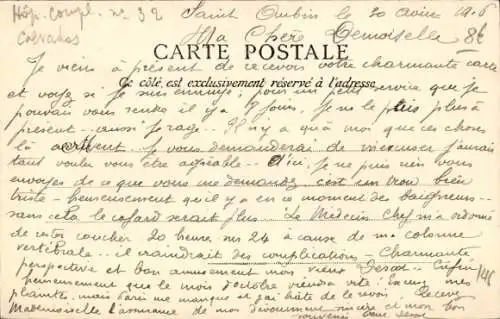 Hôp. compl. nº 32
Calvados
Saint Aubin le 20
Ma Chère Demoiselle
CARTE POSTALE
Je viens à présent de recevoir votre charmante carte
Ce côté est exclusivement réservé à l'adresse
et voyez si je m'ennuie, pour un petit service que je
pouvais vous rendre il y a 7 jours. Je ne le puis plus à
présent - aussi je rage - Il n'y a qu'à moi que ces choses
là arrivent. Je vous demanderai de m'excuser j'aurais
tant voulu vous être agréable - D'ici, je ne puis rien vous
envoyer de ce que vous me demandez c'est un trou bien
triste - heureusement qu'il y a en ce moment des baigneurs -
sans cela le cafard serait plus - Le Médecin Chef m'a ordonné
de rester coucher 20 heures sur 24 à cause de ma colonne
vertébrale - il craindrait des complications - Charmante
perspective et bon amusement mon vieux Enfin
heureusement que le mois d'octobre viendra vite. Excusez mes
plaintes, mais Paris me manque et j'ai hâte de le revoir. Recevez
Mademoiselle l'assurance de mon dévouement sincère et mon bon
souvenir